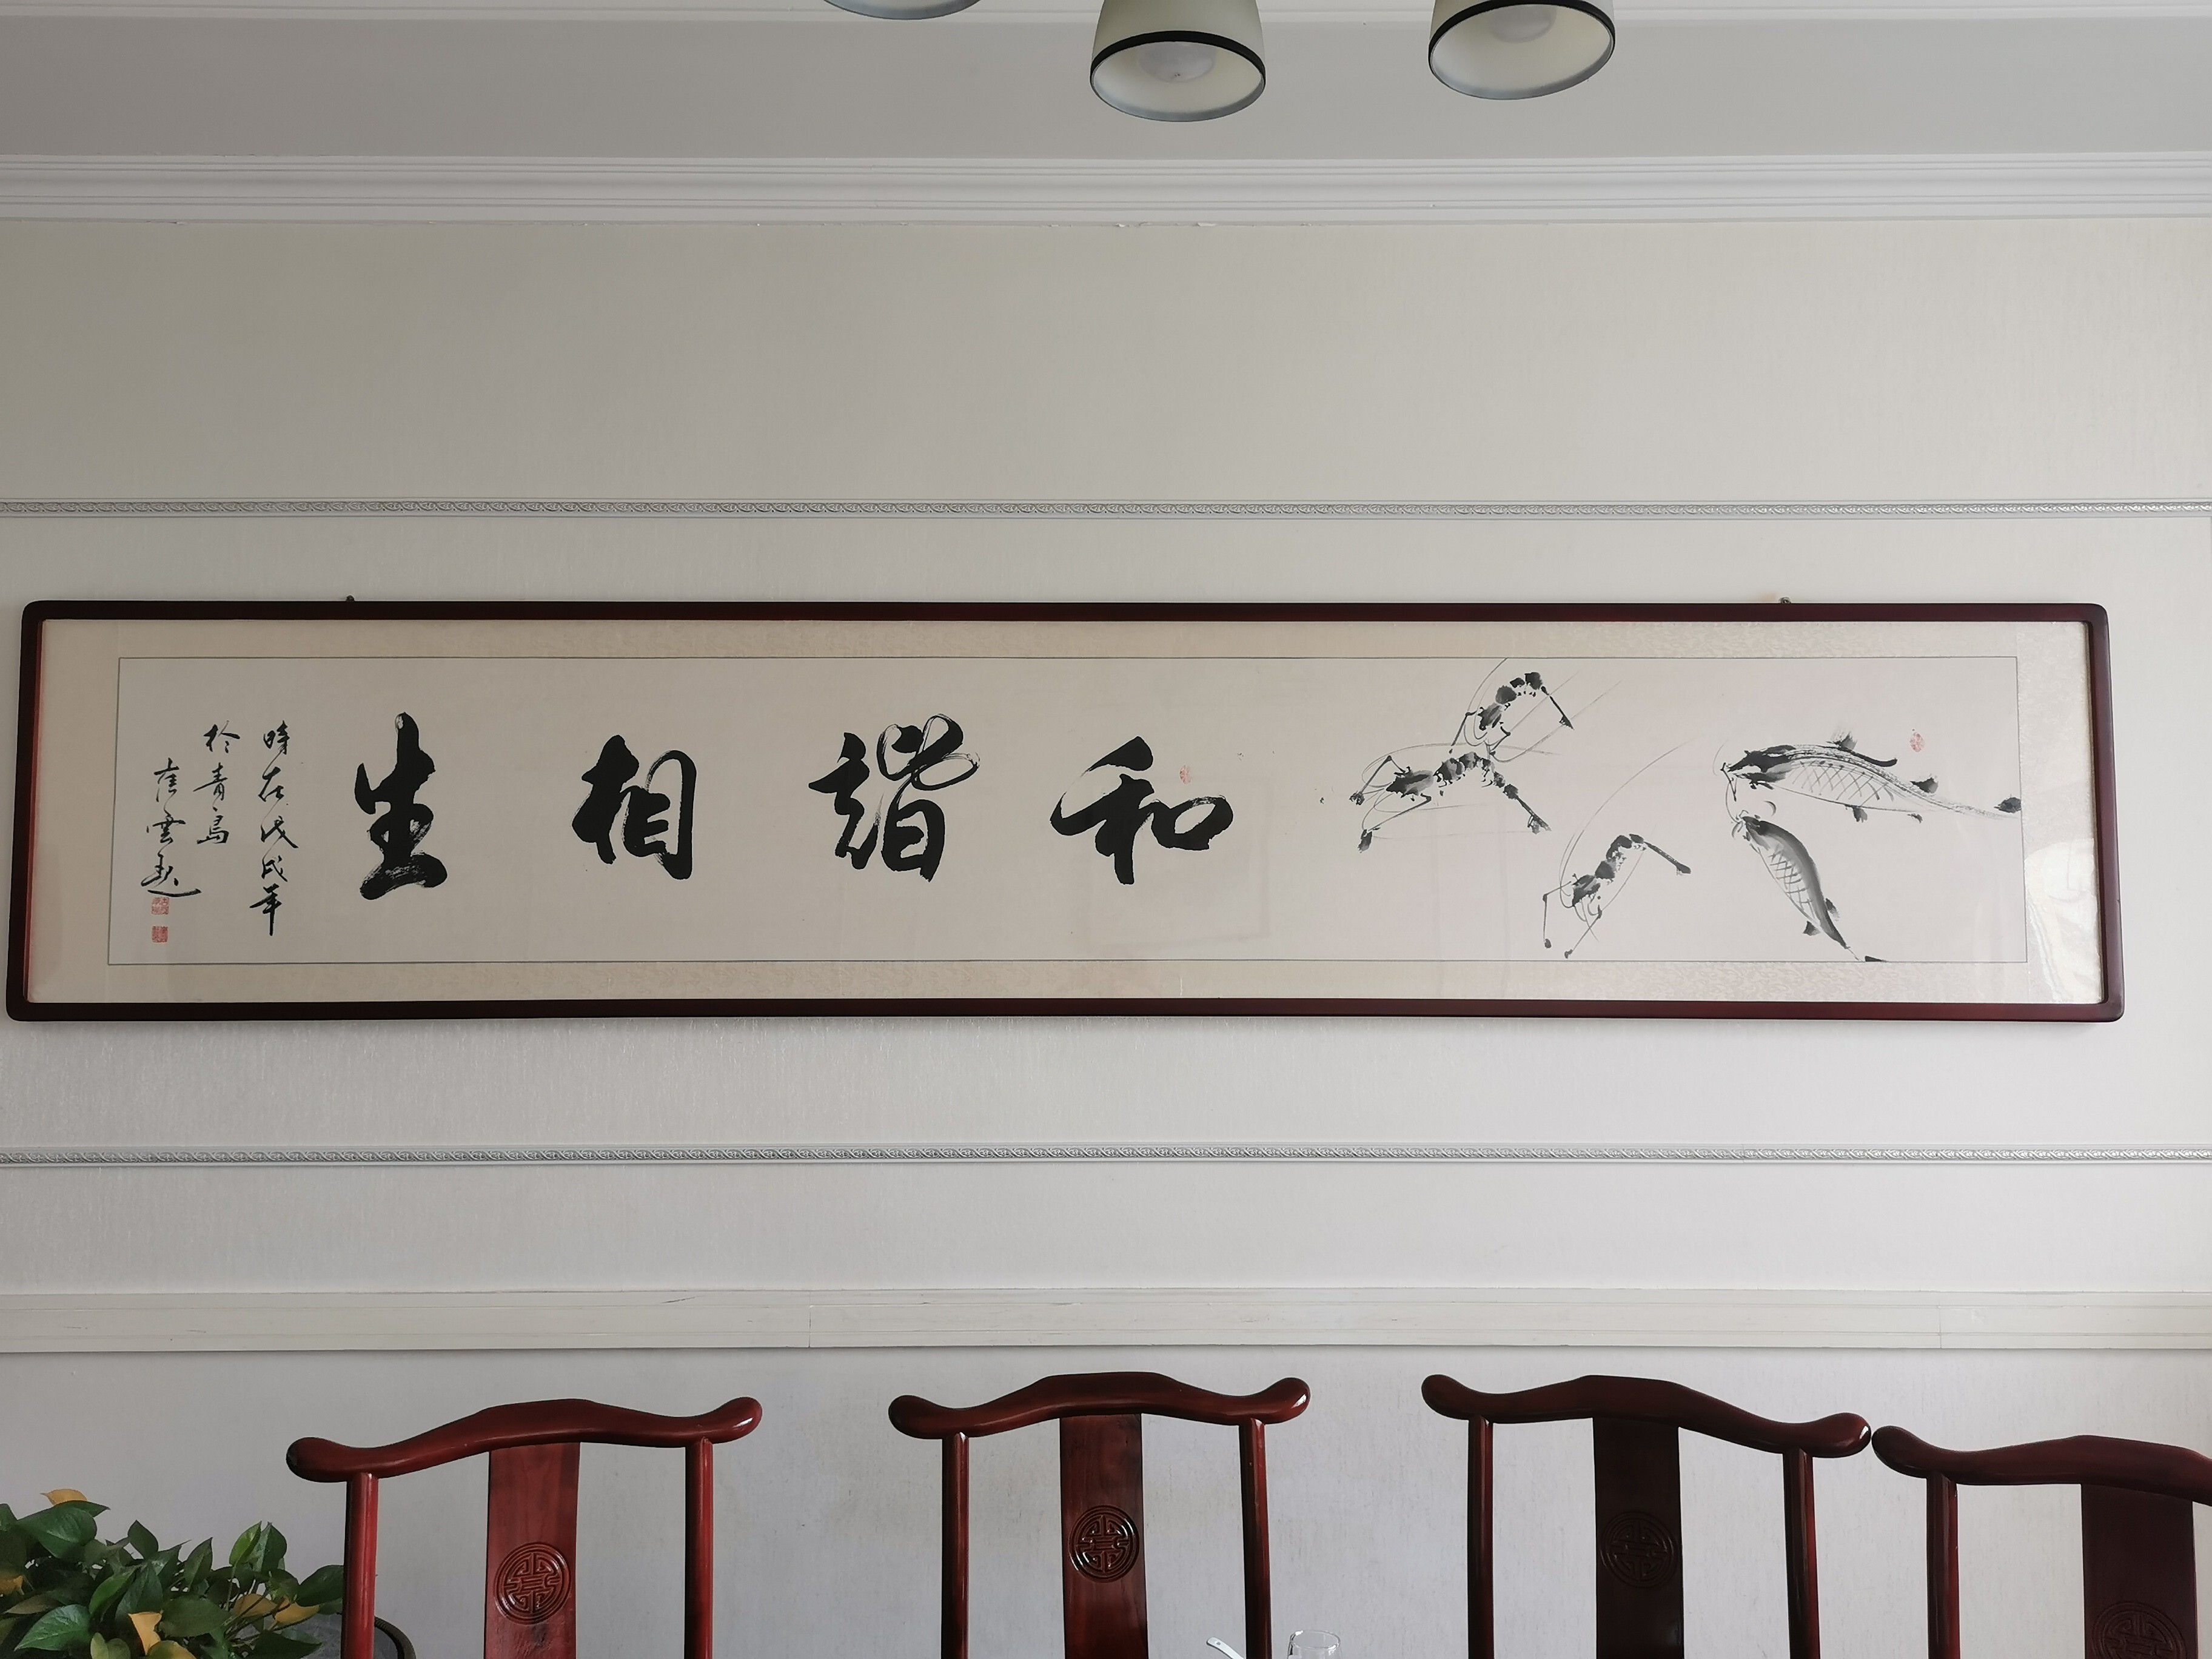 和諧相生
時在戊戌年
於青島